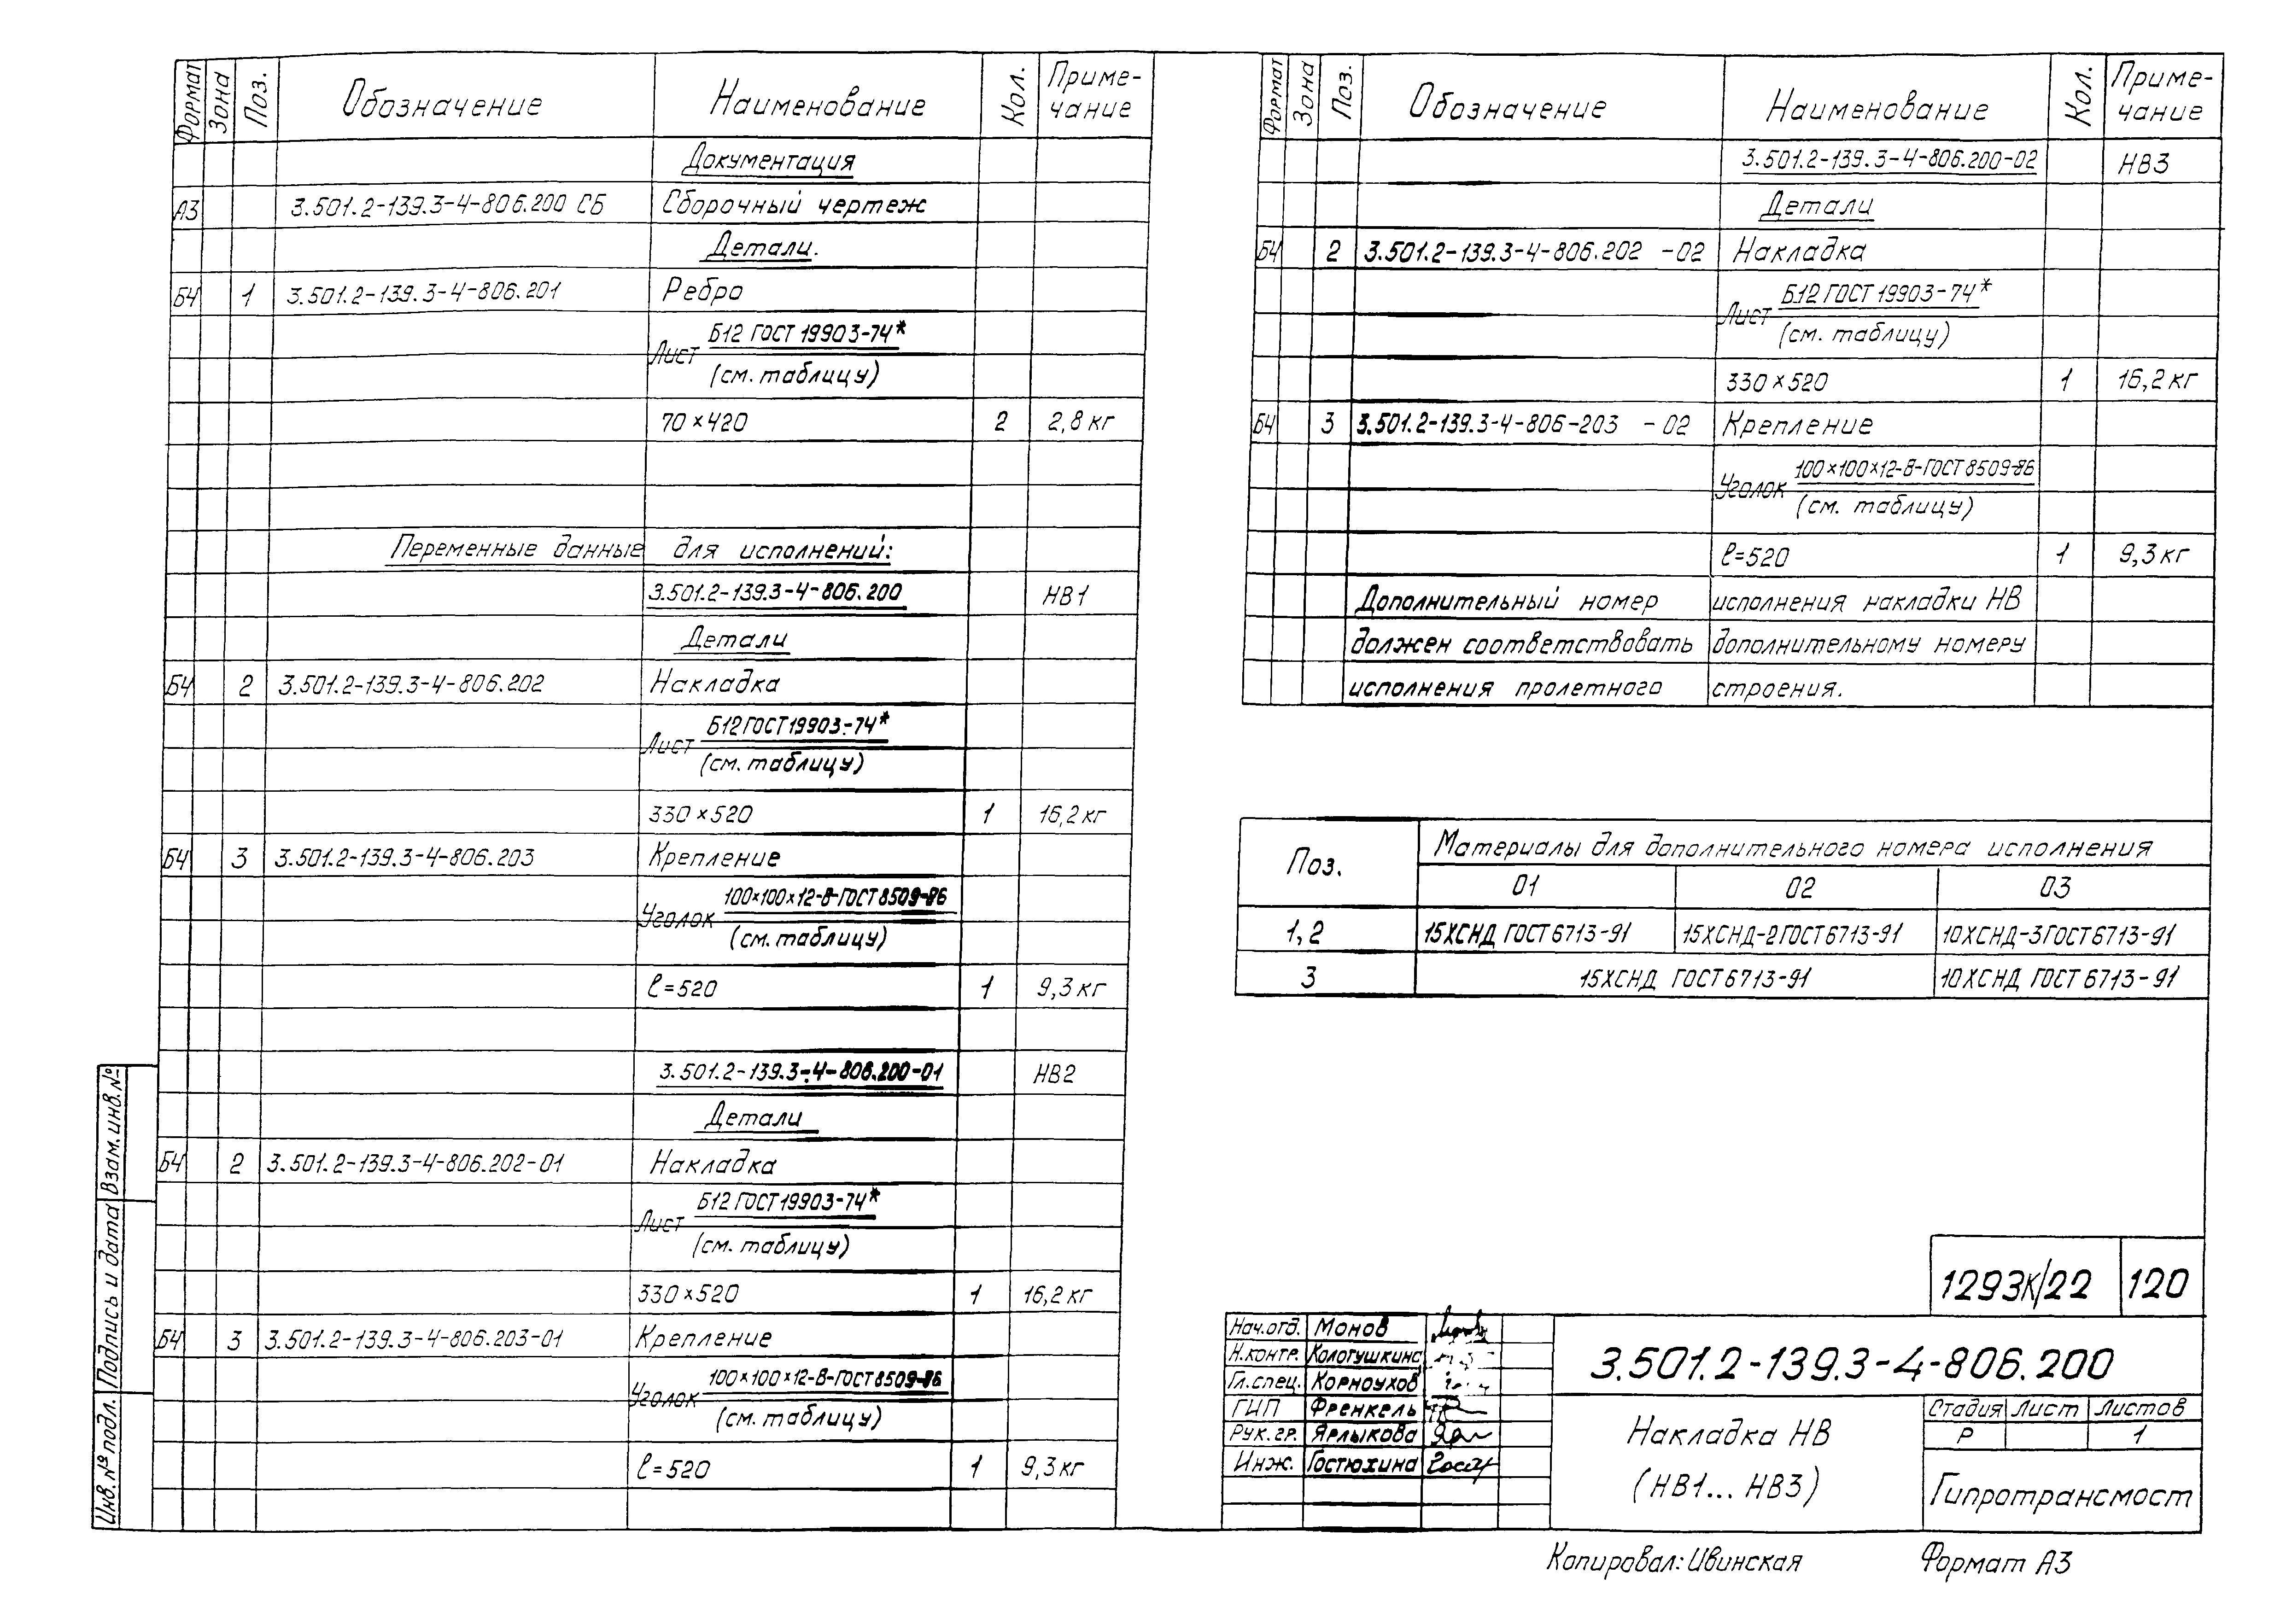 Формат Зона Поз. Обозначение Наименование Кол. Приме-
чание
Документация
А3 3.501.2-139.3-4-806.200 СБ Сборочный чертеж
Детали.
Б4 1 3.501.2-139.3-4-806.201 Ребро
Лист Б12 ГОСТ 19903-74*
(см. таблицу)
70×420 2 2,8 кг
Переменные данные для исполнений:
3.501.2-139.3-4-806.200 НВ1
Детали
Б4 2 3.501.2-139.3-4-806.202 Накладка
Лист Б12 ГОСТ 19903-74*
(см. таблицу)
330×520 1 16,2 кг
Б4 3 3.501.2-139.3-4-806.203 Крепление
Уголок 100×100×12-В-ГОСТ 8509-86
(см. таблицу)
ℓ=520 1 9,3 кг
3.501.2-139.3-4-806.200-01 НВ2
Детали
Б4 2 3.501.2-139.3-4-806.202-01 Накладка
Лист Б12 ГОСТ 19903-74*
(см. таблицу)
330×520 1 16,2 кг
Б4 3 3.501.2-139.3-4-806.203-01 Крепление
Уголок 100×100×12-В-ГОСТ 8509-86
(см. таблицу)
ℓ=520 1 9,3 кг
Инв. № подл. Подпись и дата Взам. инв. №
Формат Зона Поз. Обозначение Наименование Кол. Приме-
чание
3.501.2-139.3-4-806.200-02 НВ3
Детали
Б4 2 3.501.2-139.3-4-806.202 -02 Накладка
Лист Б12 ГОСТ 19903-74*
(см. таблицу)
330×520 1 16,2 кг
Б4 3 3.501.2-139.3-4-806-203 -02 Крепление
Уголок 100×100×12-В-ГОСТ 8509-86
(см. таблицу)
ℓ=520 1 9,3 кг
Дополнительный номер исполнения накладки НВ
должен соответствовать дополнительному номеру
исполнения пролетного строения.
Поз. Материалы для дополнительного номера исполнения
01 02 03
1, 2 15ХСНД ГОСТ 6713-91 15ХСНД-2 ГОСТ 6713-91 10ХСНД-3 ГОСТ 6713-91
3 15ХСНД ГОСТ 6713-91 10ХСНД ГОСТ 6713-91
1293К/22 120
Нач.отд. Монов
Н.контр. Кологушкина
Гл.спец. Корноухов
ГИП Френкель
Рук.гр. Ярлыкова
Инж. Гостюхина
3.501.2-139.3-4-806.200
Накладка НВ
(НВ1... НВ3)
Стадия Лист Листов
Р 1
Гипротрансмост
Копировал: Ивинская Формат А3